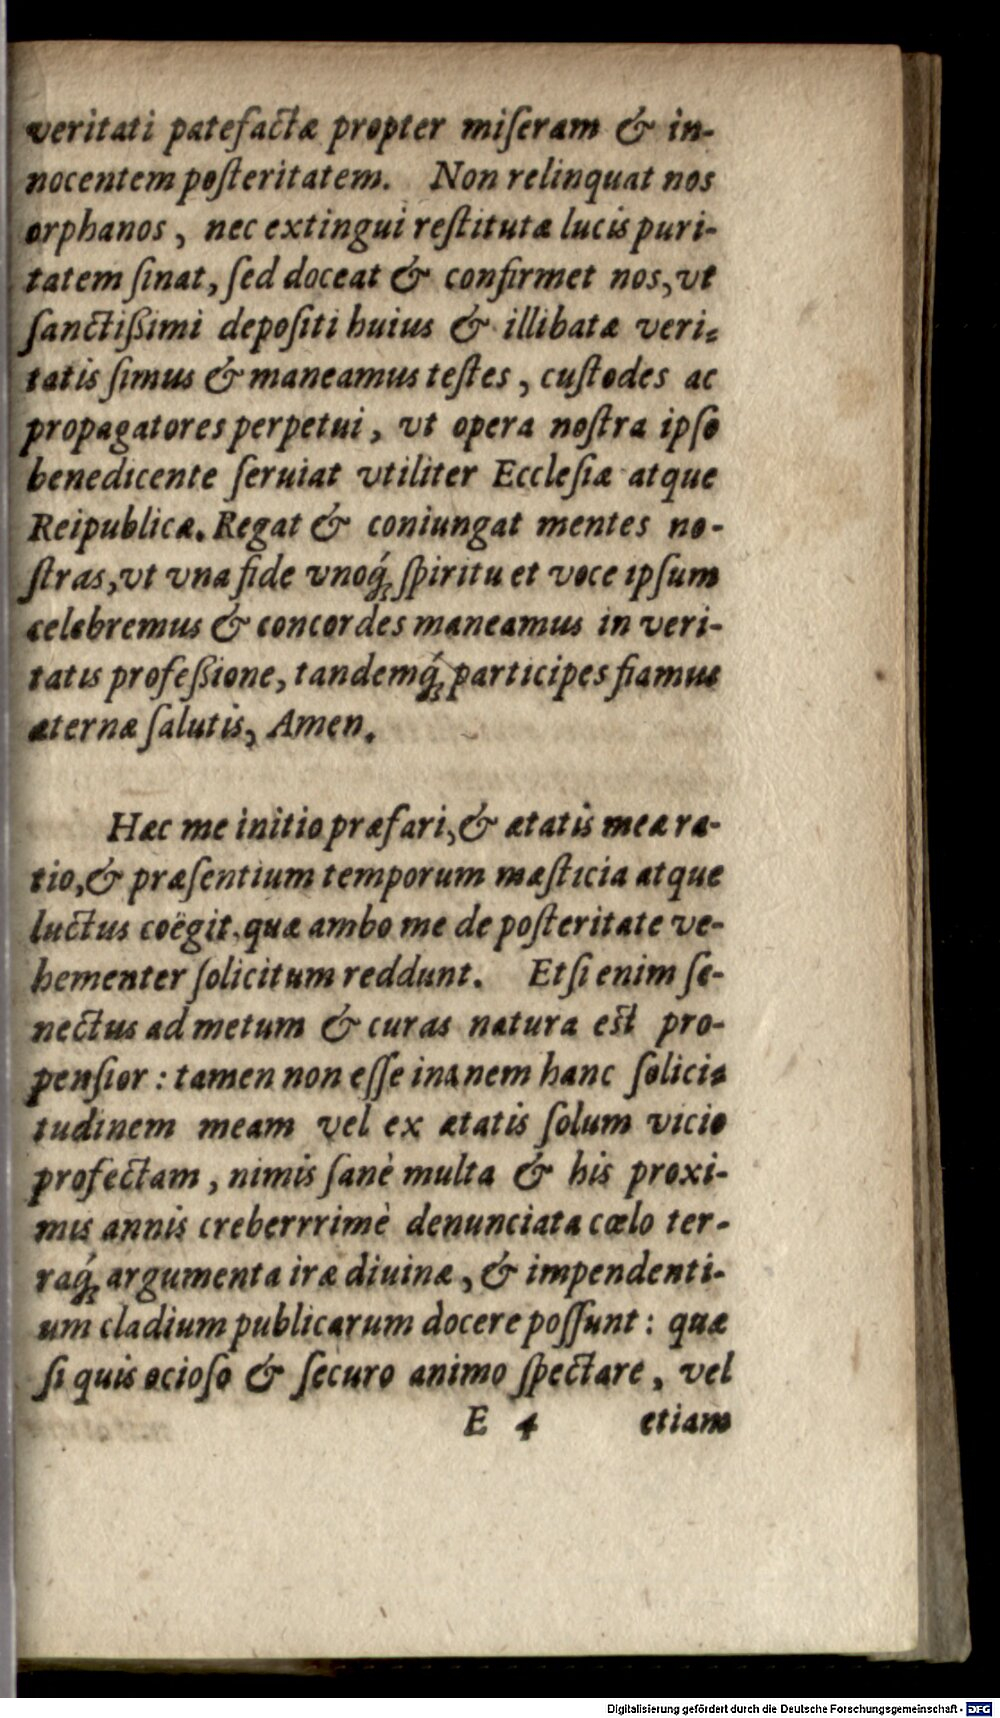 veritati patefactæ propter miſeram & in-
nocentem poſteritatem. Non relinquat nos
orphanos, nec extingui reſtitutæ lucis puri-
tatem ſinat, ſed doceat & confirmet nos, vt
ſanctißimi depoſiti huius & illibatæ veri-
tatis ſimus & maneamus teſtes, cuſtodes ac
propagatores perpetui, vt opera noſtra ipſo
benedicente ſeruiat vtiliter Eccleſiæ atque
Reipublicæ. Regat & coniungat mentes no-
ſtras, vt vna fide vnoq́; ſpiritu et voce ipſum
celebremus & concordes maneamus in veri-
tatis profeßione, tandemq́; participes fiamus
æternæ ſalutis, Amen.
Hæc me initio præfari, & ætatis meæ ra-
tio, & præſentium temporum mæſticia atque
luctus coëgit. quæ ambo me de poſteritate ve-
hementer ſolicitum reddunt. Etſi enim ſe-
nectus ad metum & curas natura eſt pro-
penſior: tamen non eſſe inanem hanc ſolici-
tudinem meam vel ex ætatis ſolum vicio
profectam, nimis ſanè multa & his proxi-
mis annis creberrrimè denunciata cœlo ter-
raq́; argumenta iræ diuinæ, & impendenti-
um cladium publicarum docere poſſunt: quæ
ſi quis ocioſo & ſecuro animo ſpectare, vel
E 4 etiam
Digitalisierung gefördert durch die Deutsche Forschungsgemeinschaft - DFG